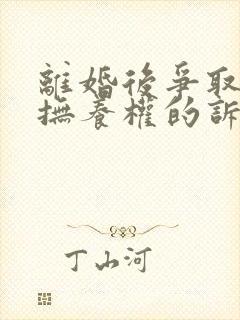 離婚後爭取
撫養權的訴
丁山河